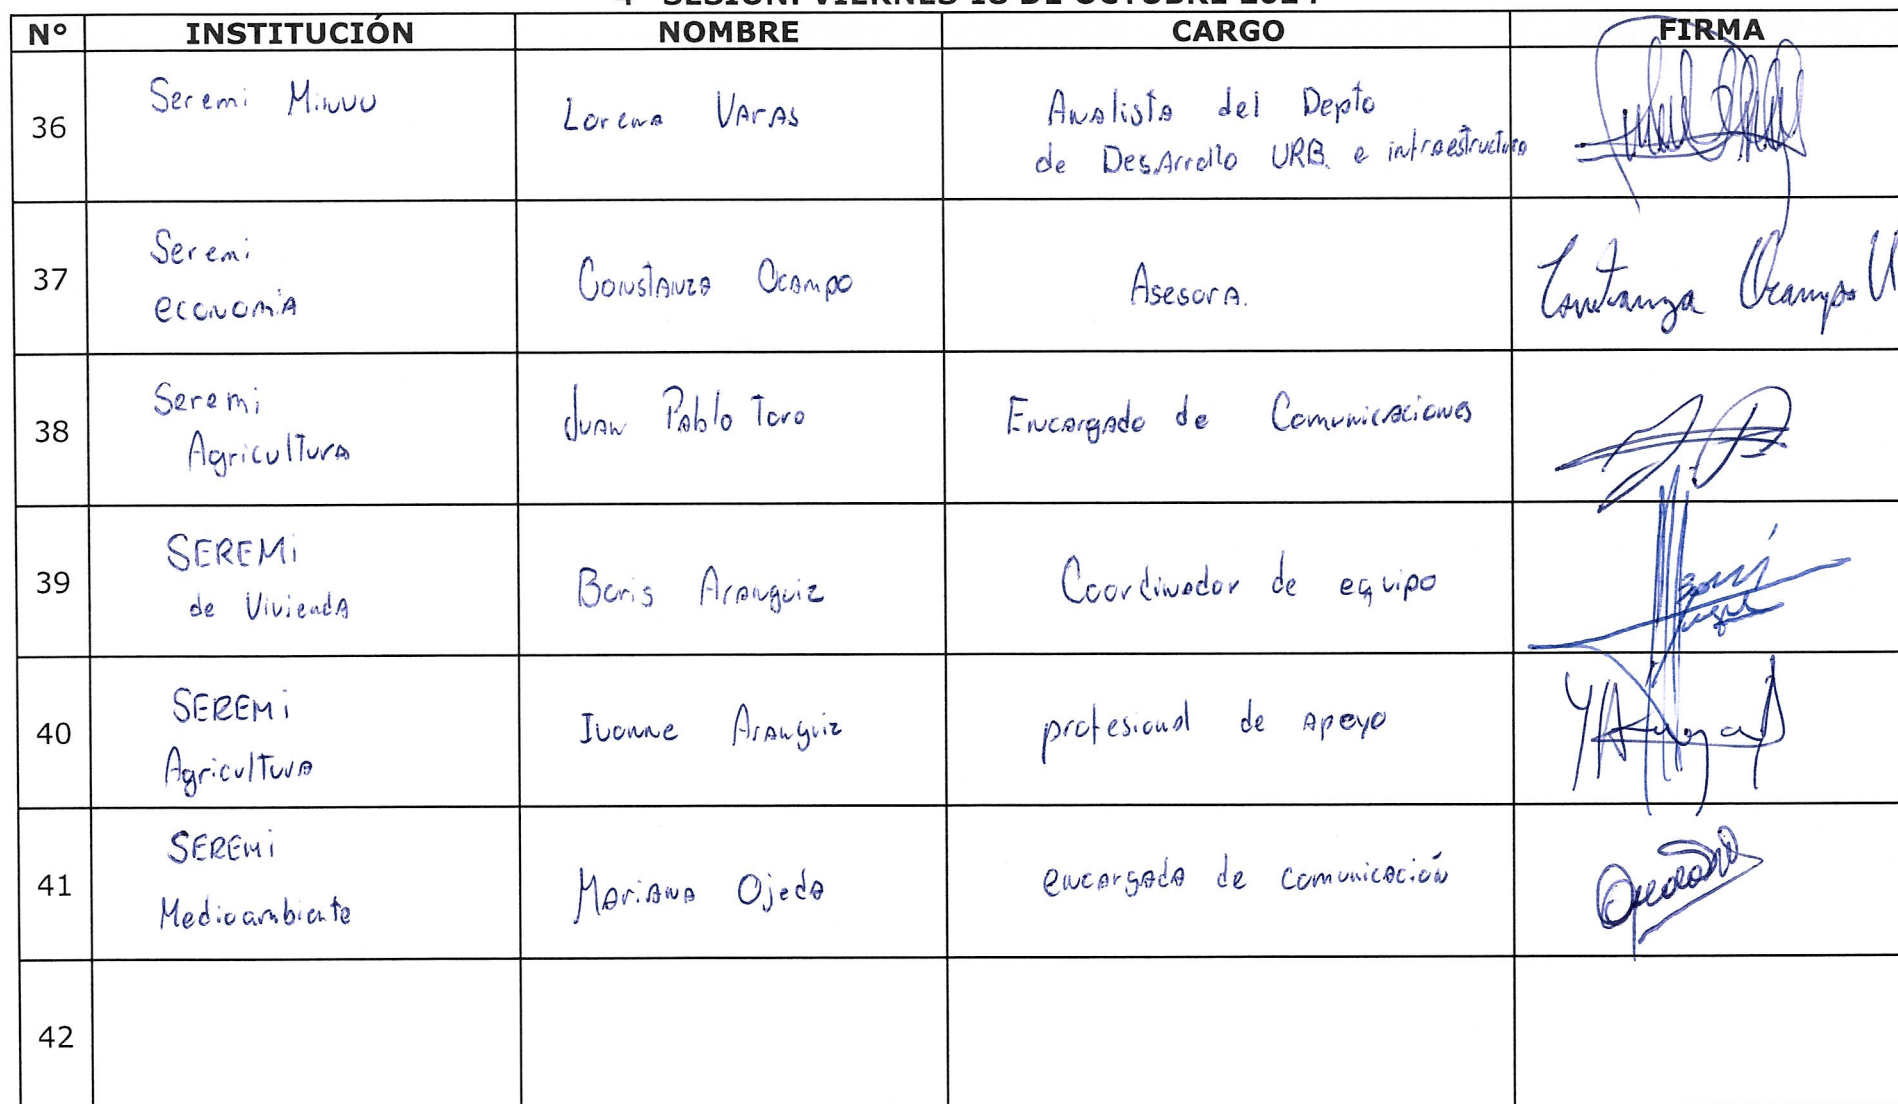 4° SESIÓN: VIERNES 18 DE OCTUBRE 2024
N° INSTITUCIÓN NOMBRE CARGO FIRMA
36 Seremi Minvu Lorena Varas Analista del Depto
de Desarrollo URB. e infraestructura
37 Seremi
economía Constanza Ocampo Asesora. Constanza Ocampo U
38 Seremi
Agricultura Juan Pablo Toro Encargado de Comunicaciones
39 SEREMi
de Vivienda Boris Aranguiz Coordinador de equipo
40 SEREMi
Agricultura Ivonne Aranguiz profesional de apoyo
41 SEREMi
Medioambiente Mariana Ojeda encargada de comunicación
42